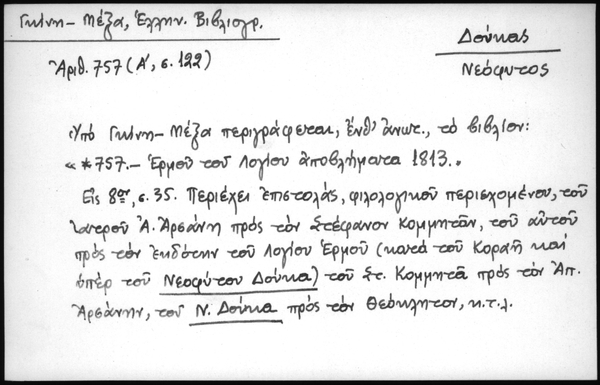 Γκίνη - Μέξα, Ἑλλην. Βιβλιογρ.
Δούκας
Νεόφυτος
Ἀριθ. 757 (Α', σ. 122)
Ὑπὸ Γκίνη - Μέξα περιγράφεται, ἔνθ' ἀνωτ., τὸ βιβλίον:
« *757.- Ἑρμοῦ τοῦ Λογίου ἀποβλήματα 1813.»
Εἰς 8ον, σ. 35. Περιέχει ἐπιστολάς, φιλολογικοῦ περιεχομένου, τοῦ
Ἰατροῦ Ἀ. Ἀρσάνη πρὸς τὸν Στέφανον Κομμητᾶν, τοῦ αὐτοῦ
πρὸς τὸν ἐκδότην τοῦ Λογίου Ἑρμοῦ (κατὰ τοῦ Κοραῆ καὶ
ὑπὲρ τοῦ Νεοφύτου Δούκα) τοῦ Στ. Κομμητᾶ πρὸς τὸν Ἀπ.
Ἀρσάνην, τοῦ Ν. Δούκα πρὸς τὸν Θεόκλητον, κ.τ.λ.